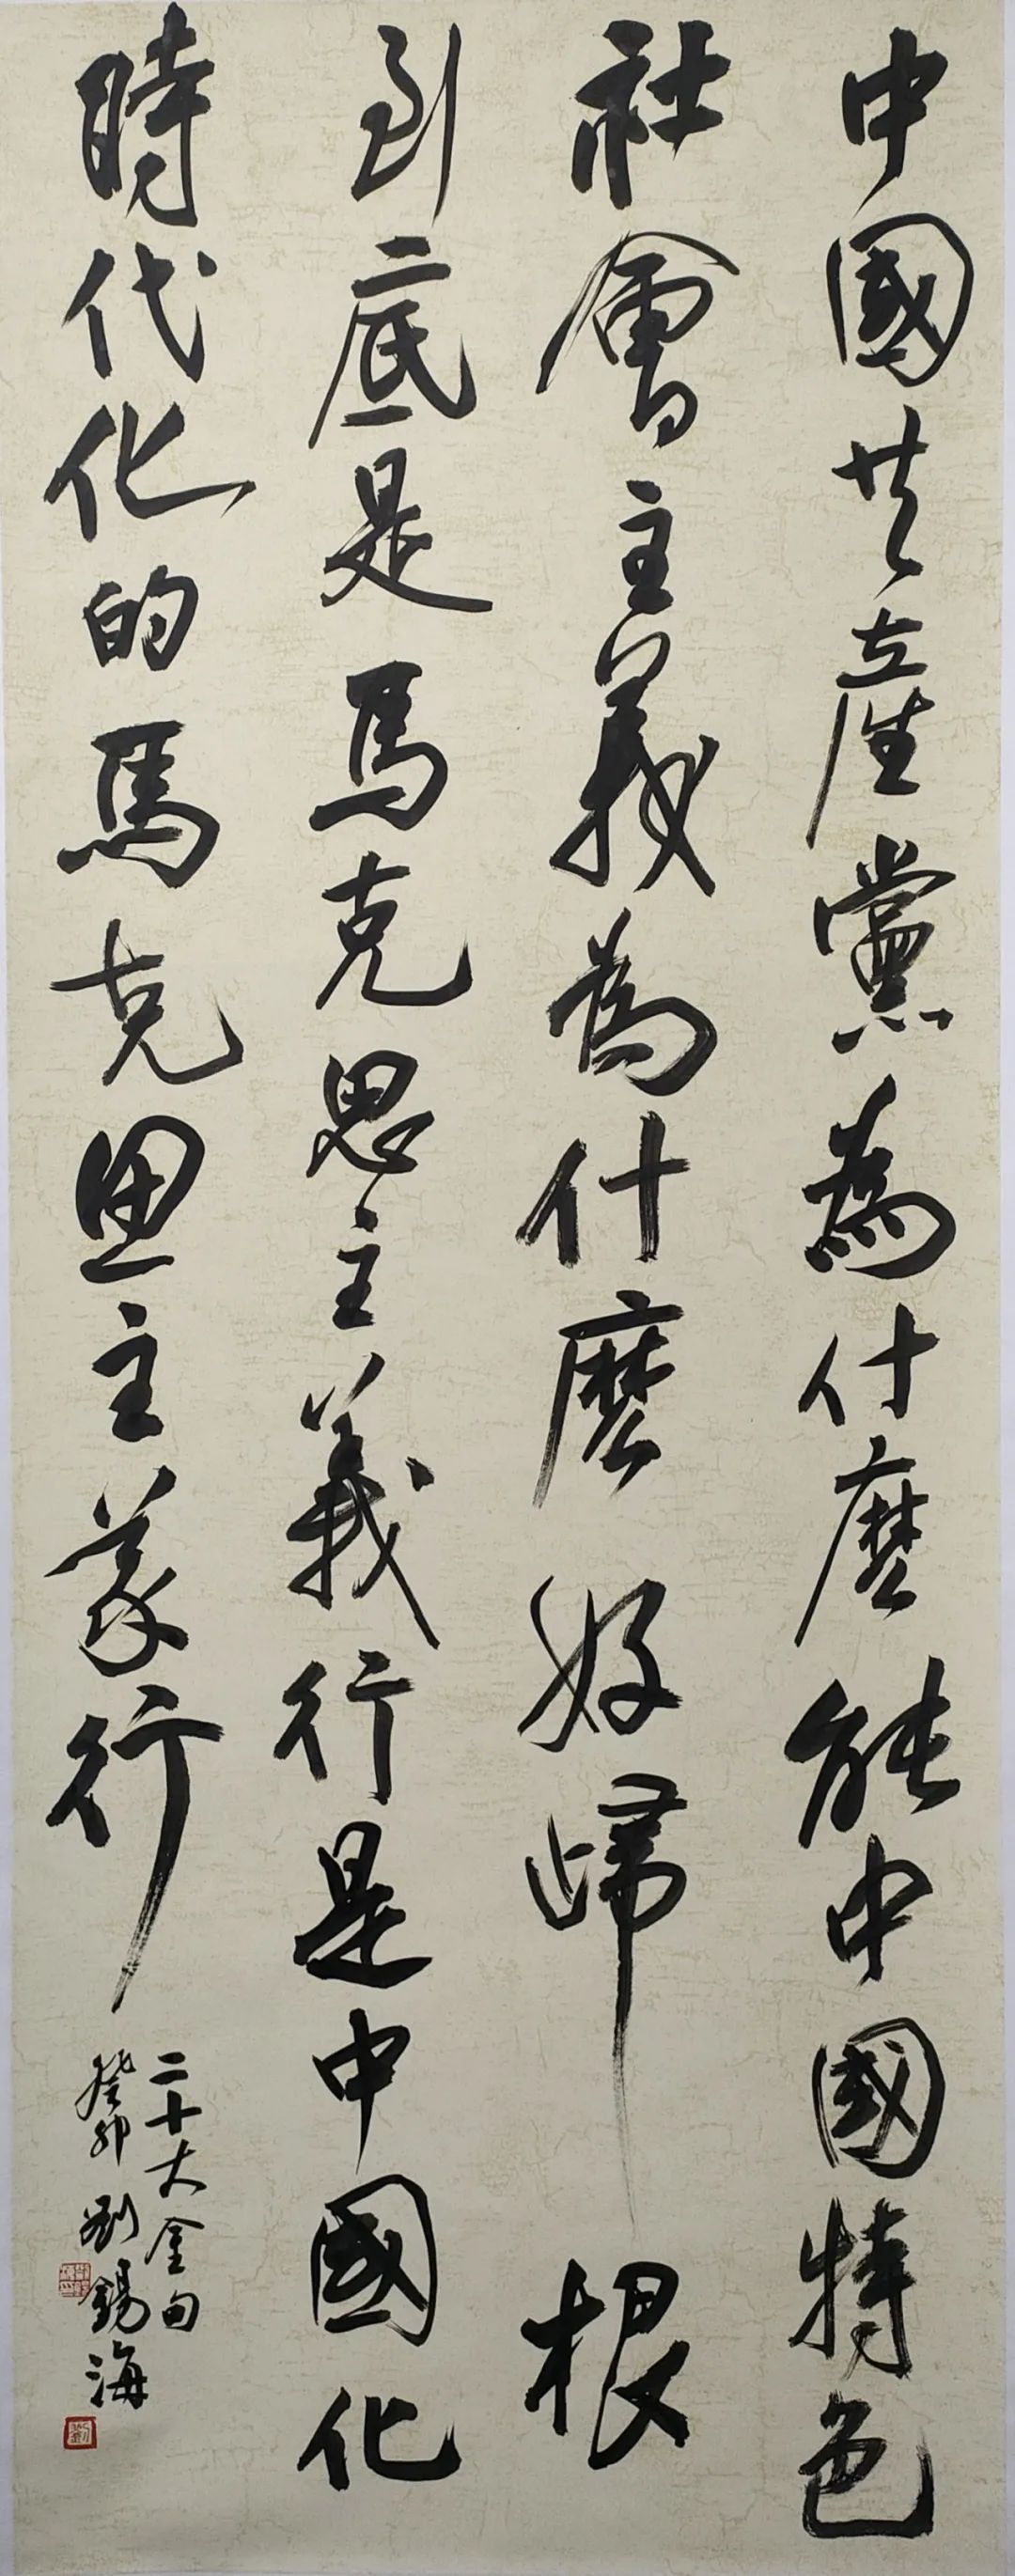 中國共產黨為什麼能中國特色
社會主義為什麼好歸根
到底是馬克思主義行是中國化
時代化的馬克思主義行
二十大金句
癸卯劉錫海
劉